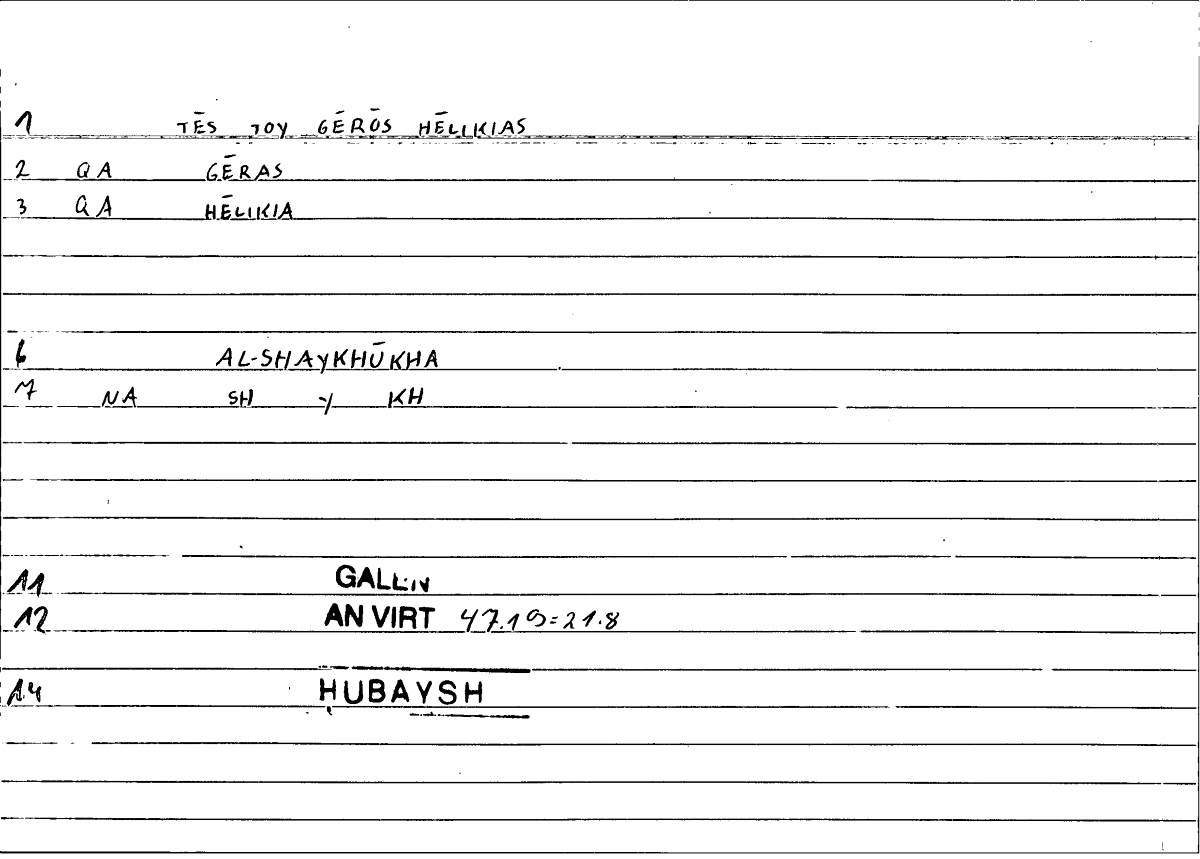 1 TĒS TOY GĒRŌS HĒLIKIAS
2 QA GĒRAS
3 QA HĒLIKIA
6 AL-SHAYKHŪKHA
7 NA SH Y KH
11 GALEN
12 AN VIRT 47.19=21.8
14 ḤUBAYSH